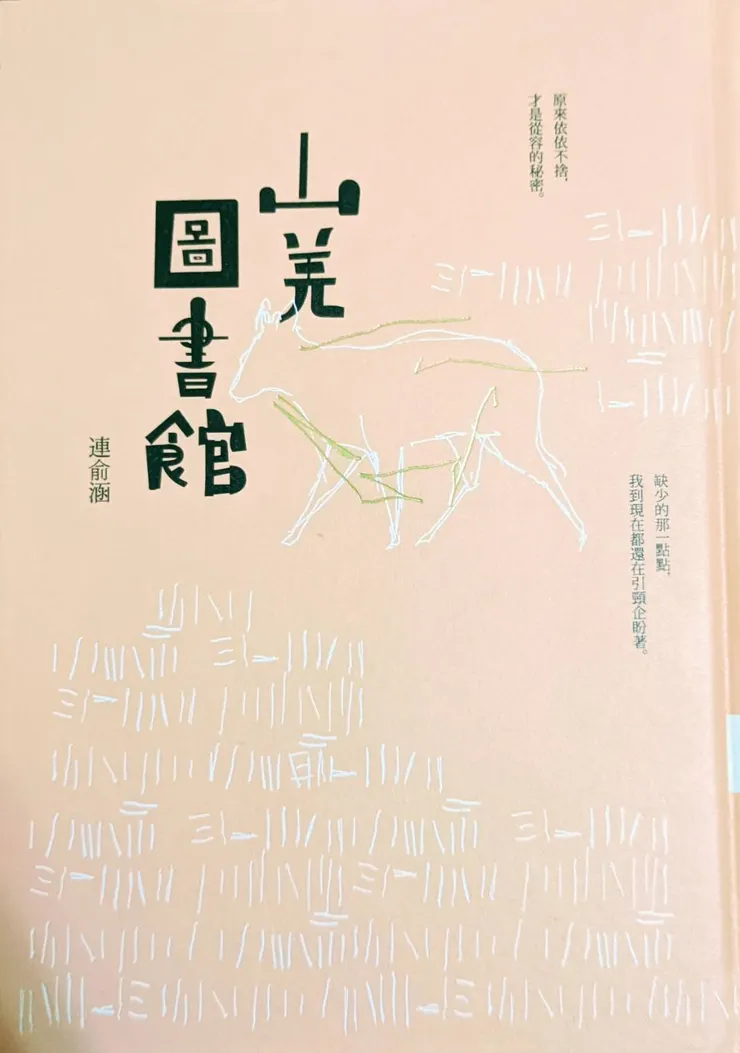 原來依依不捨，
才是從容的秘密。
山羌
圖書館
連俞涵
缺少的那一點點，
我到現在都還在引頸企盼著。